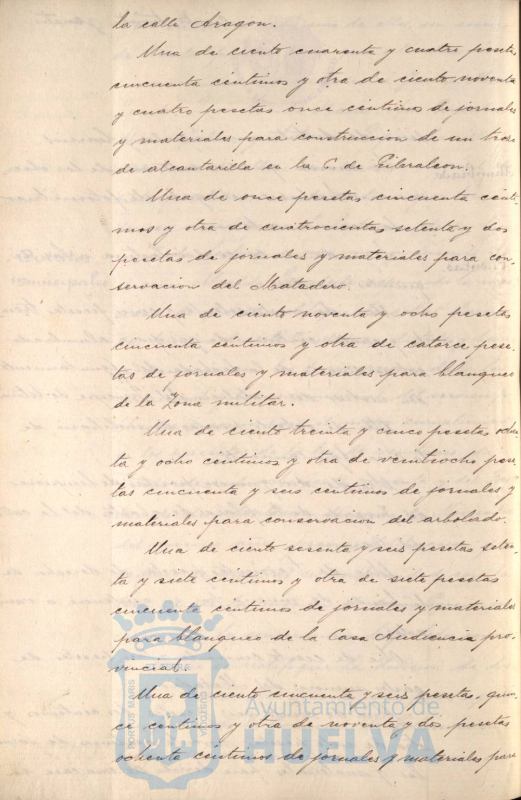 la calle Aragon.
Una de ciento cuarenta y cuatro pesetas
cincuenta céntimos y otra de ciento noventa
y cuatro pesetas once céntimos de jornales
y materiales para construccion de un trozo
de alcantarilla en la C. de Gibraleon.
Una de once pesetas cincuenta cénti-
mos y otra de cuatrocientas setenta y dos
pesetas de jornales y materiales para con-
servacion del Matadero.
Una de ciento noventa y ocho pesetas
cincuenta céntimos y otra de catorce pese-
tas de jornales y materiales para blanqueo
de la Zona militar.
Una de ciento treinta y cinco pesetas ochen-
ta y ocho centimos y otra de veintiocho pese
tas cincuenta y seis centimos de jornales y
materiales para conservacion del arbolado.
Una de ciento sesenta y seis pesetas seten-
ta y siete centimos y otra de siete pesetas
cincuenta centimos de jornales y materiales
para blanqueo de la Casa Audiencia pro-
vincial.
Una de ciento cincuenta y seis pesetas, quin-
ce centimos y otra de noventa y dos pesetas
ochenta céntimos de jornales y materiales para
PORTUS MARIS
CUSTODIA
Ayuntamiento de
HUELVA